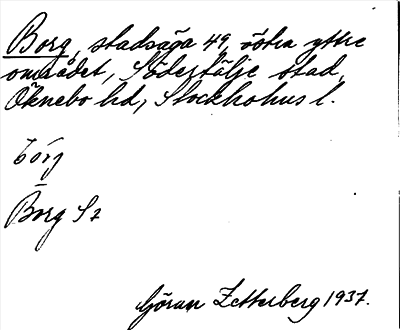 Borg, stadsäga 49, östra yttre
området, Södertälje stad,
Öknebo hd, Stockholms l.
bórj
Borg Sz
Göran Zetterberg 1937.